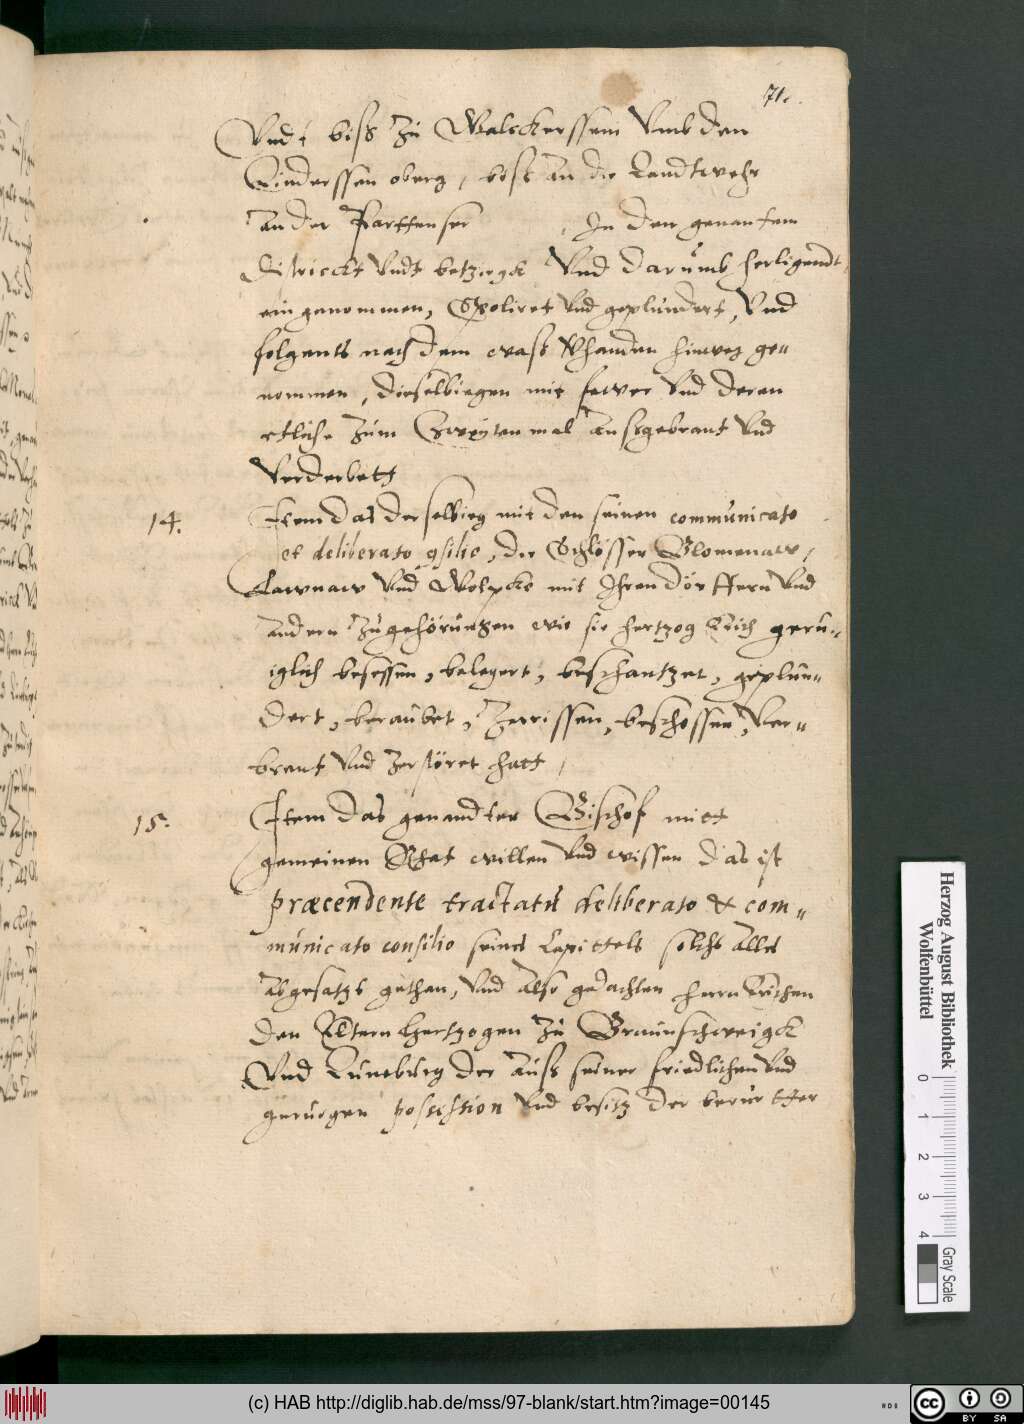 71.
Vndt biß zu Walsckerssem Vmb den
Linderssen oberg, biß an die Landtwehr
An der Parttenser , In den genantem
Districkt Vndt betzirgck Vnd darumb herligendt,
ein genommen, Spoliret Vnd geplundert, Vnd
folgents nach dem waß Vhanden hinweg ge=
nommen, dieselbiegen mit fewer Vnd deren
etliche Zum Zweyten mal Außgebrant Vnd
Verderbett
14. Item das derselbieg mit den seinen communicato
et deliberato gsilio, die Schlösser Blomenaw,
Lawnaw Vnd Wolpcke mit Ihren dörffern Vnd
andern Zugehörungen wie sie hertzog Erich geru=
iglich besessen, belegert, beschantzet, geplun=
dert, beraubet, Zerrissen, beschossen, Ver=
brant Vnd Zerstöret hatt,
15. Item das genandter Bischof mitt
gemeinen Rhat willen Vnd wissen das ist
præcendente tractatu deliberato & com=
municato consilio seines Capittels solchs Alles
Abgesatzs gethan, Vnd Also gedachten herrn Erichen
den Eltern Hertzogen Zu Braunschweigck
Vnd Luneburg der Auß seiner friedlichen Vnd
geruigen possession Vnd besitz der berurtter
Herzog August Bibliothek
Wolfenbüttel
0 1 2 3 4
Gray Scale
(c) HAB http://diglib.hab.de/mss/97-blank/start.htm?image=00145
cc BY SA